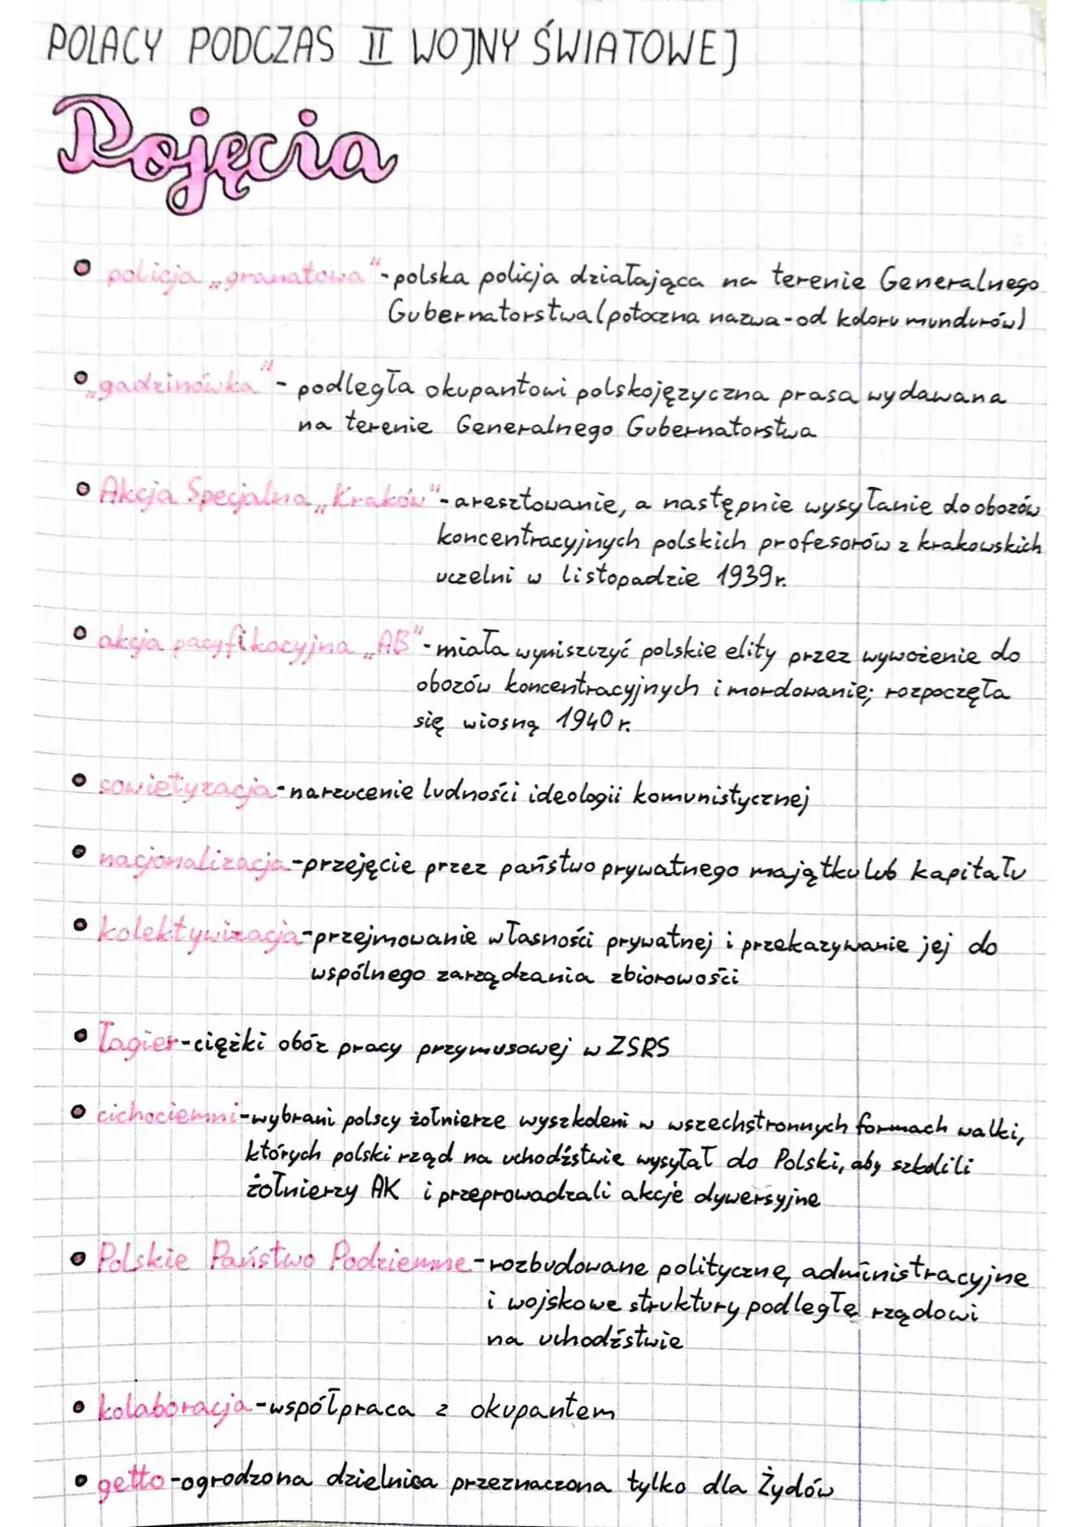 POLACY PODCZAS II WOJNY ŚWIATOWEJ
Pojęcia
policja „granatowa" - polska policja działająca na terenie Generalnego
Gubernatorstwa (potoczna nazwa - od koloru mundurów)
„gadzinówka" - podległa okupantowi polskojęzyczna prasa wydawana
na terenie Generalnego Gubernatorstwa
Akcja Specjalna „Kraków" - aresztowanie, a następnie wysyłanie do obozów
koncentracyjnych polskich profesorów z krakowskich
uczelni w listopadzie 1939r.
akcja pacyfikacyjna „AB" - miała wyniszczyć polskie elity przez wywożenie do
obozów koncentracyjnych i mordowanie; rozpoczęła
się wiosną 1940 r.
sowietyzacja - narzucenie ludności ideologii komunistycznej
nacjonalizacja - przejęcie przez państwo prywatnego majątku lub kapitału
kolektywizacja - przejmowanie własności prywatnej i przekazywanie jej do
wspólnego zarządzania zbiorowości
łagier - ciężki obóz pracy przymusowej w ZSRS
cichociemni - wybrani polscy żołnierze wyszkoleni w wszechstronnych formach walki,
których polski rząd na uchodźstwie wysyłał do Polski, aby szkolili
żołnierzy AK i przeprowadzali akcje dywersyjne
Polskie Państwo Podziemne - rozbudowane polityczne, administracyjne
i wojskowe struktury podległe rządowi
na uchodźstwie
kolaboracja - współpraca z okupantem
getto - ogrodzona dzielnica przeznaczona tylko dla Żydów